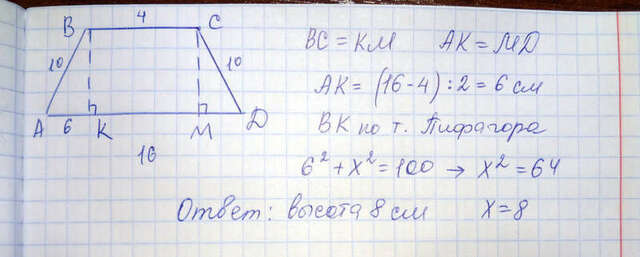 4
B C
10 10
A 6 K M D
16
BC = KM AK = MD
AK = (16-4) : 2 = 6 см
BK по т. Пифагора
6² + x² = 100 → x² = 64
Ответ: высота 8 см x = 8